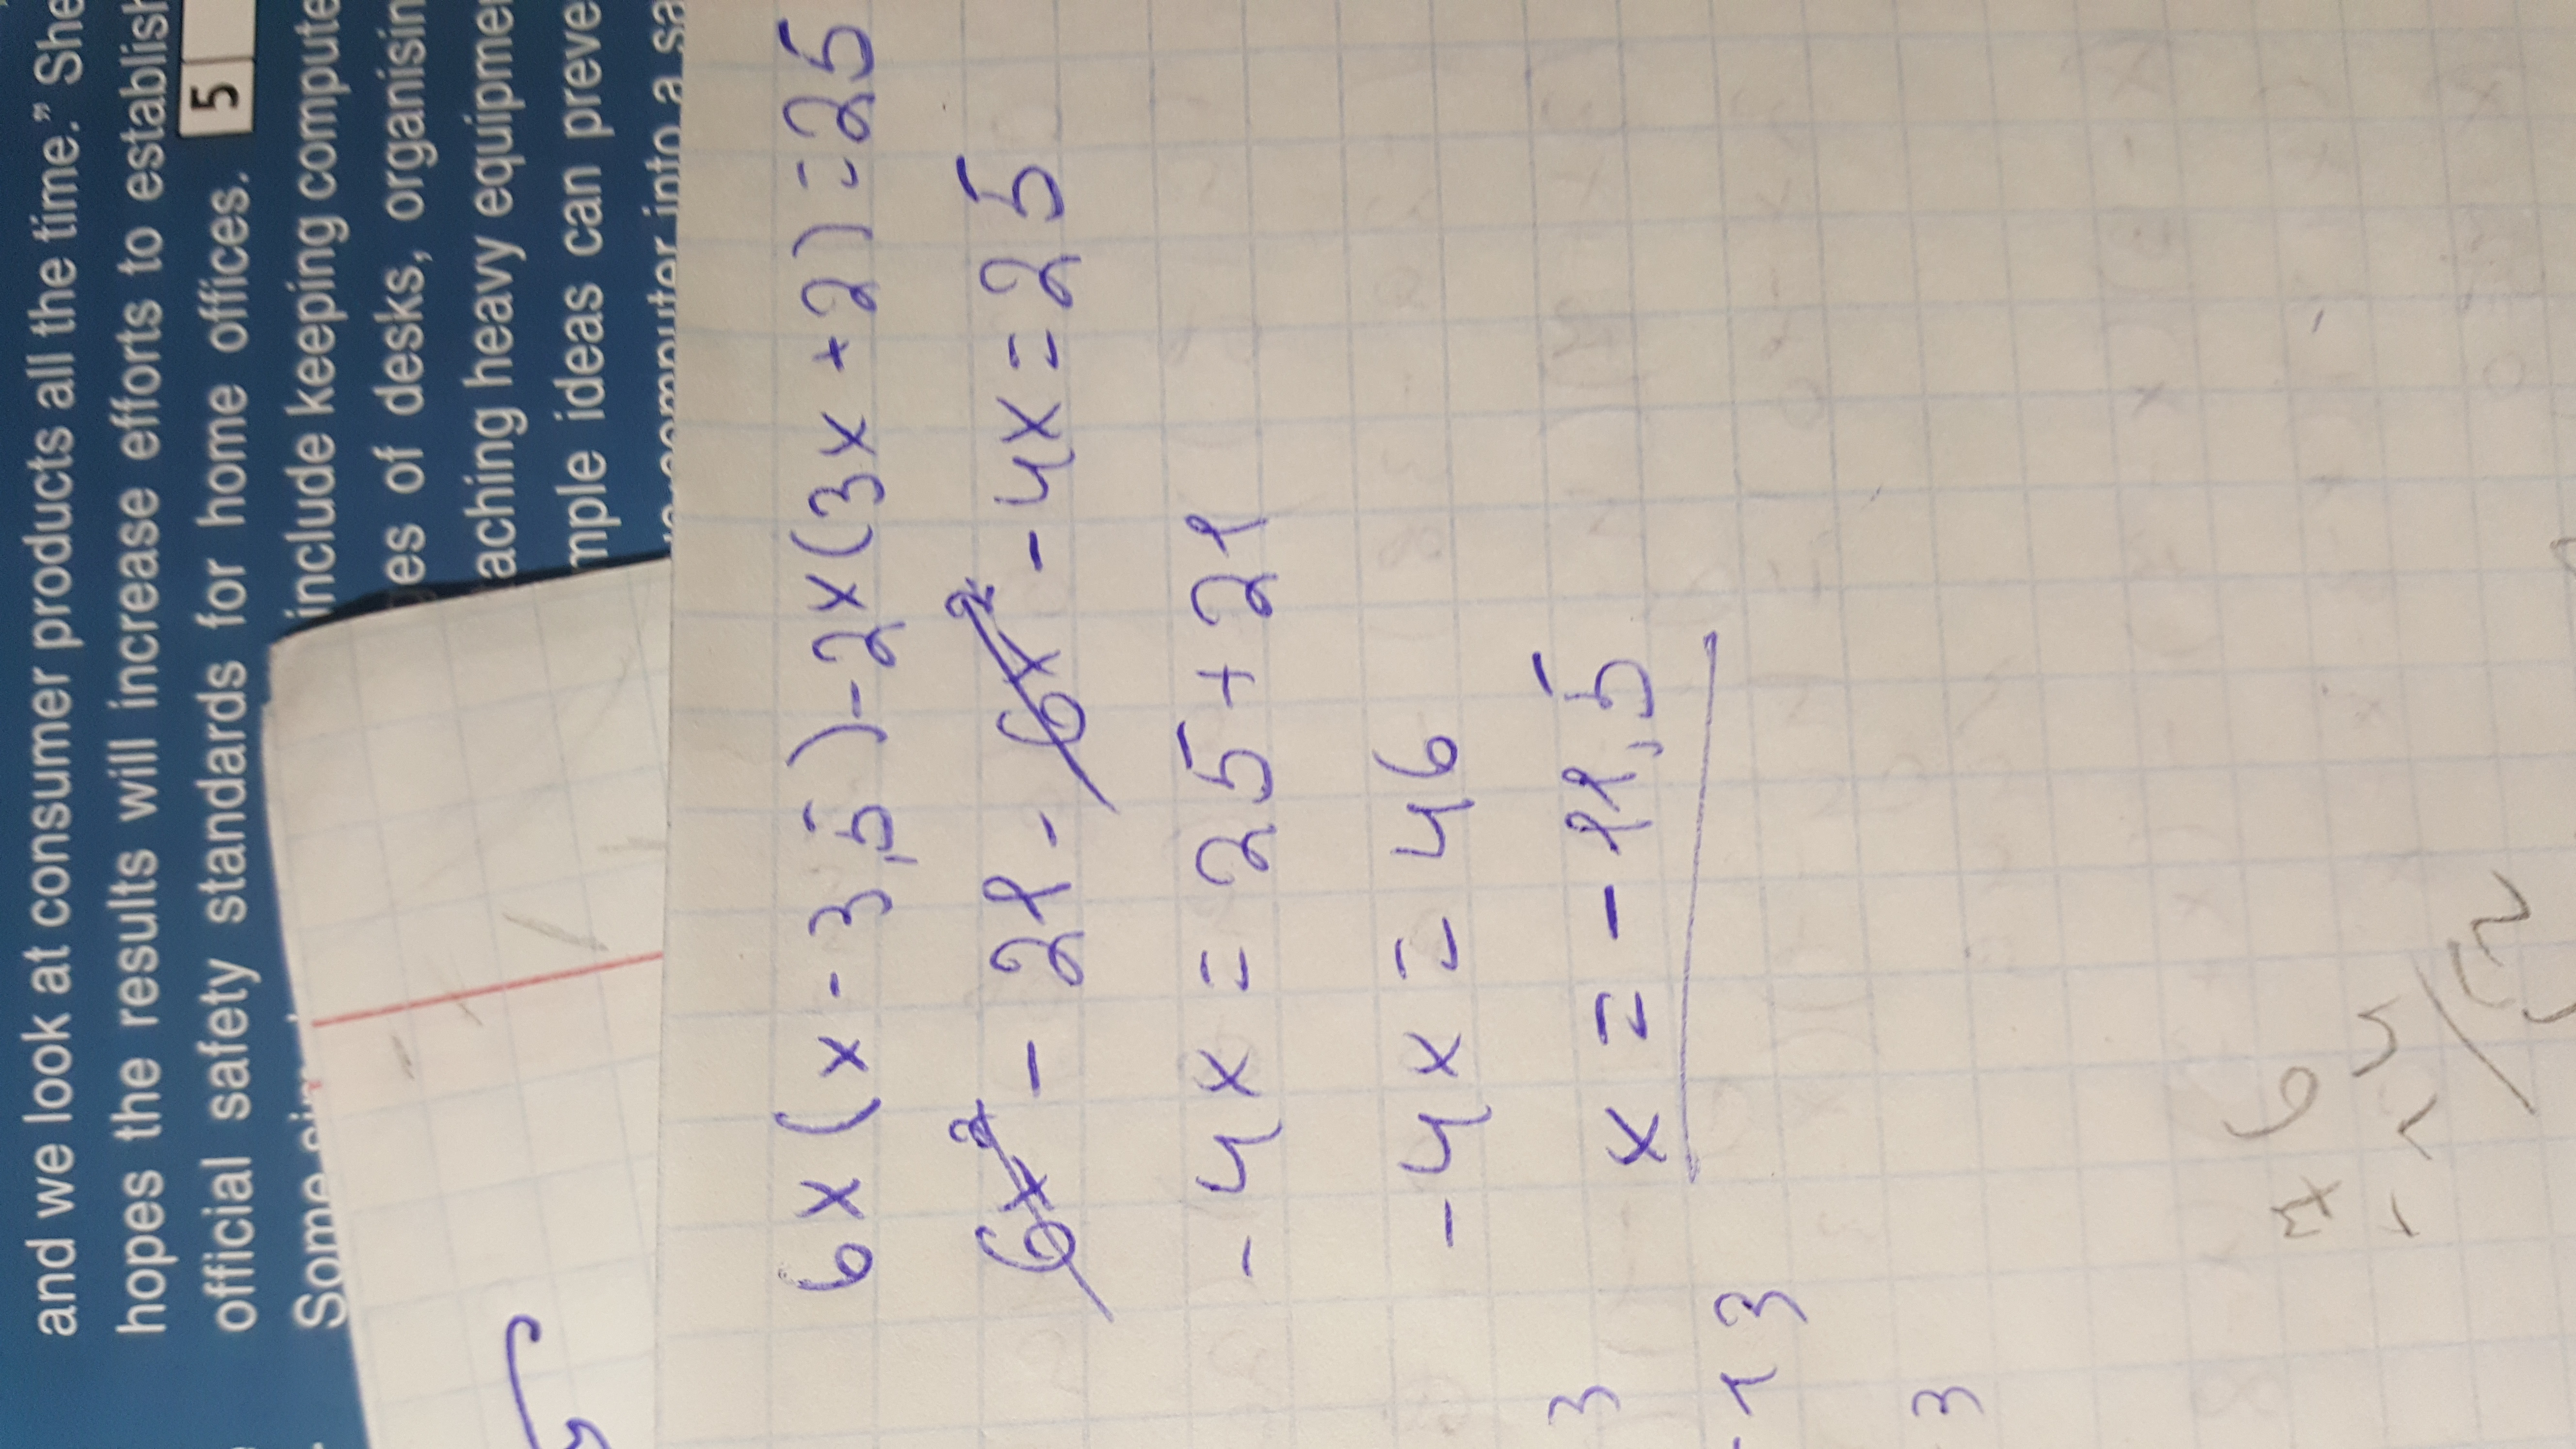 and we look at consumer products all the time.” She
hopes the results will increase efforts to establish
official safety standards for home offices. 5
Some include keeping compute
es of desks, organisin
aching heavy equipmen
mple ideas can preve
computer into a sa
6x(x-3,5)-2x(3x+2)=25
6x²-21-6x²-4x=25
-4x=25+21
-4x=46
x=-11,5
3
-13
3